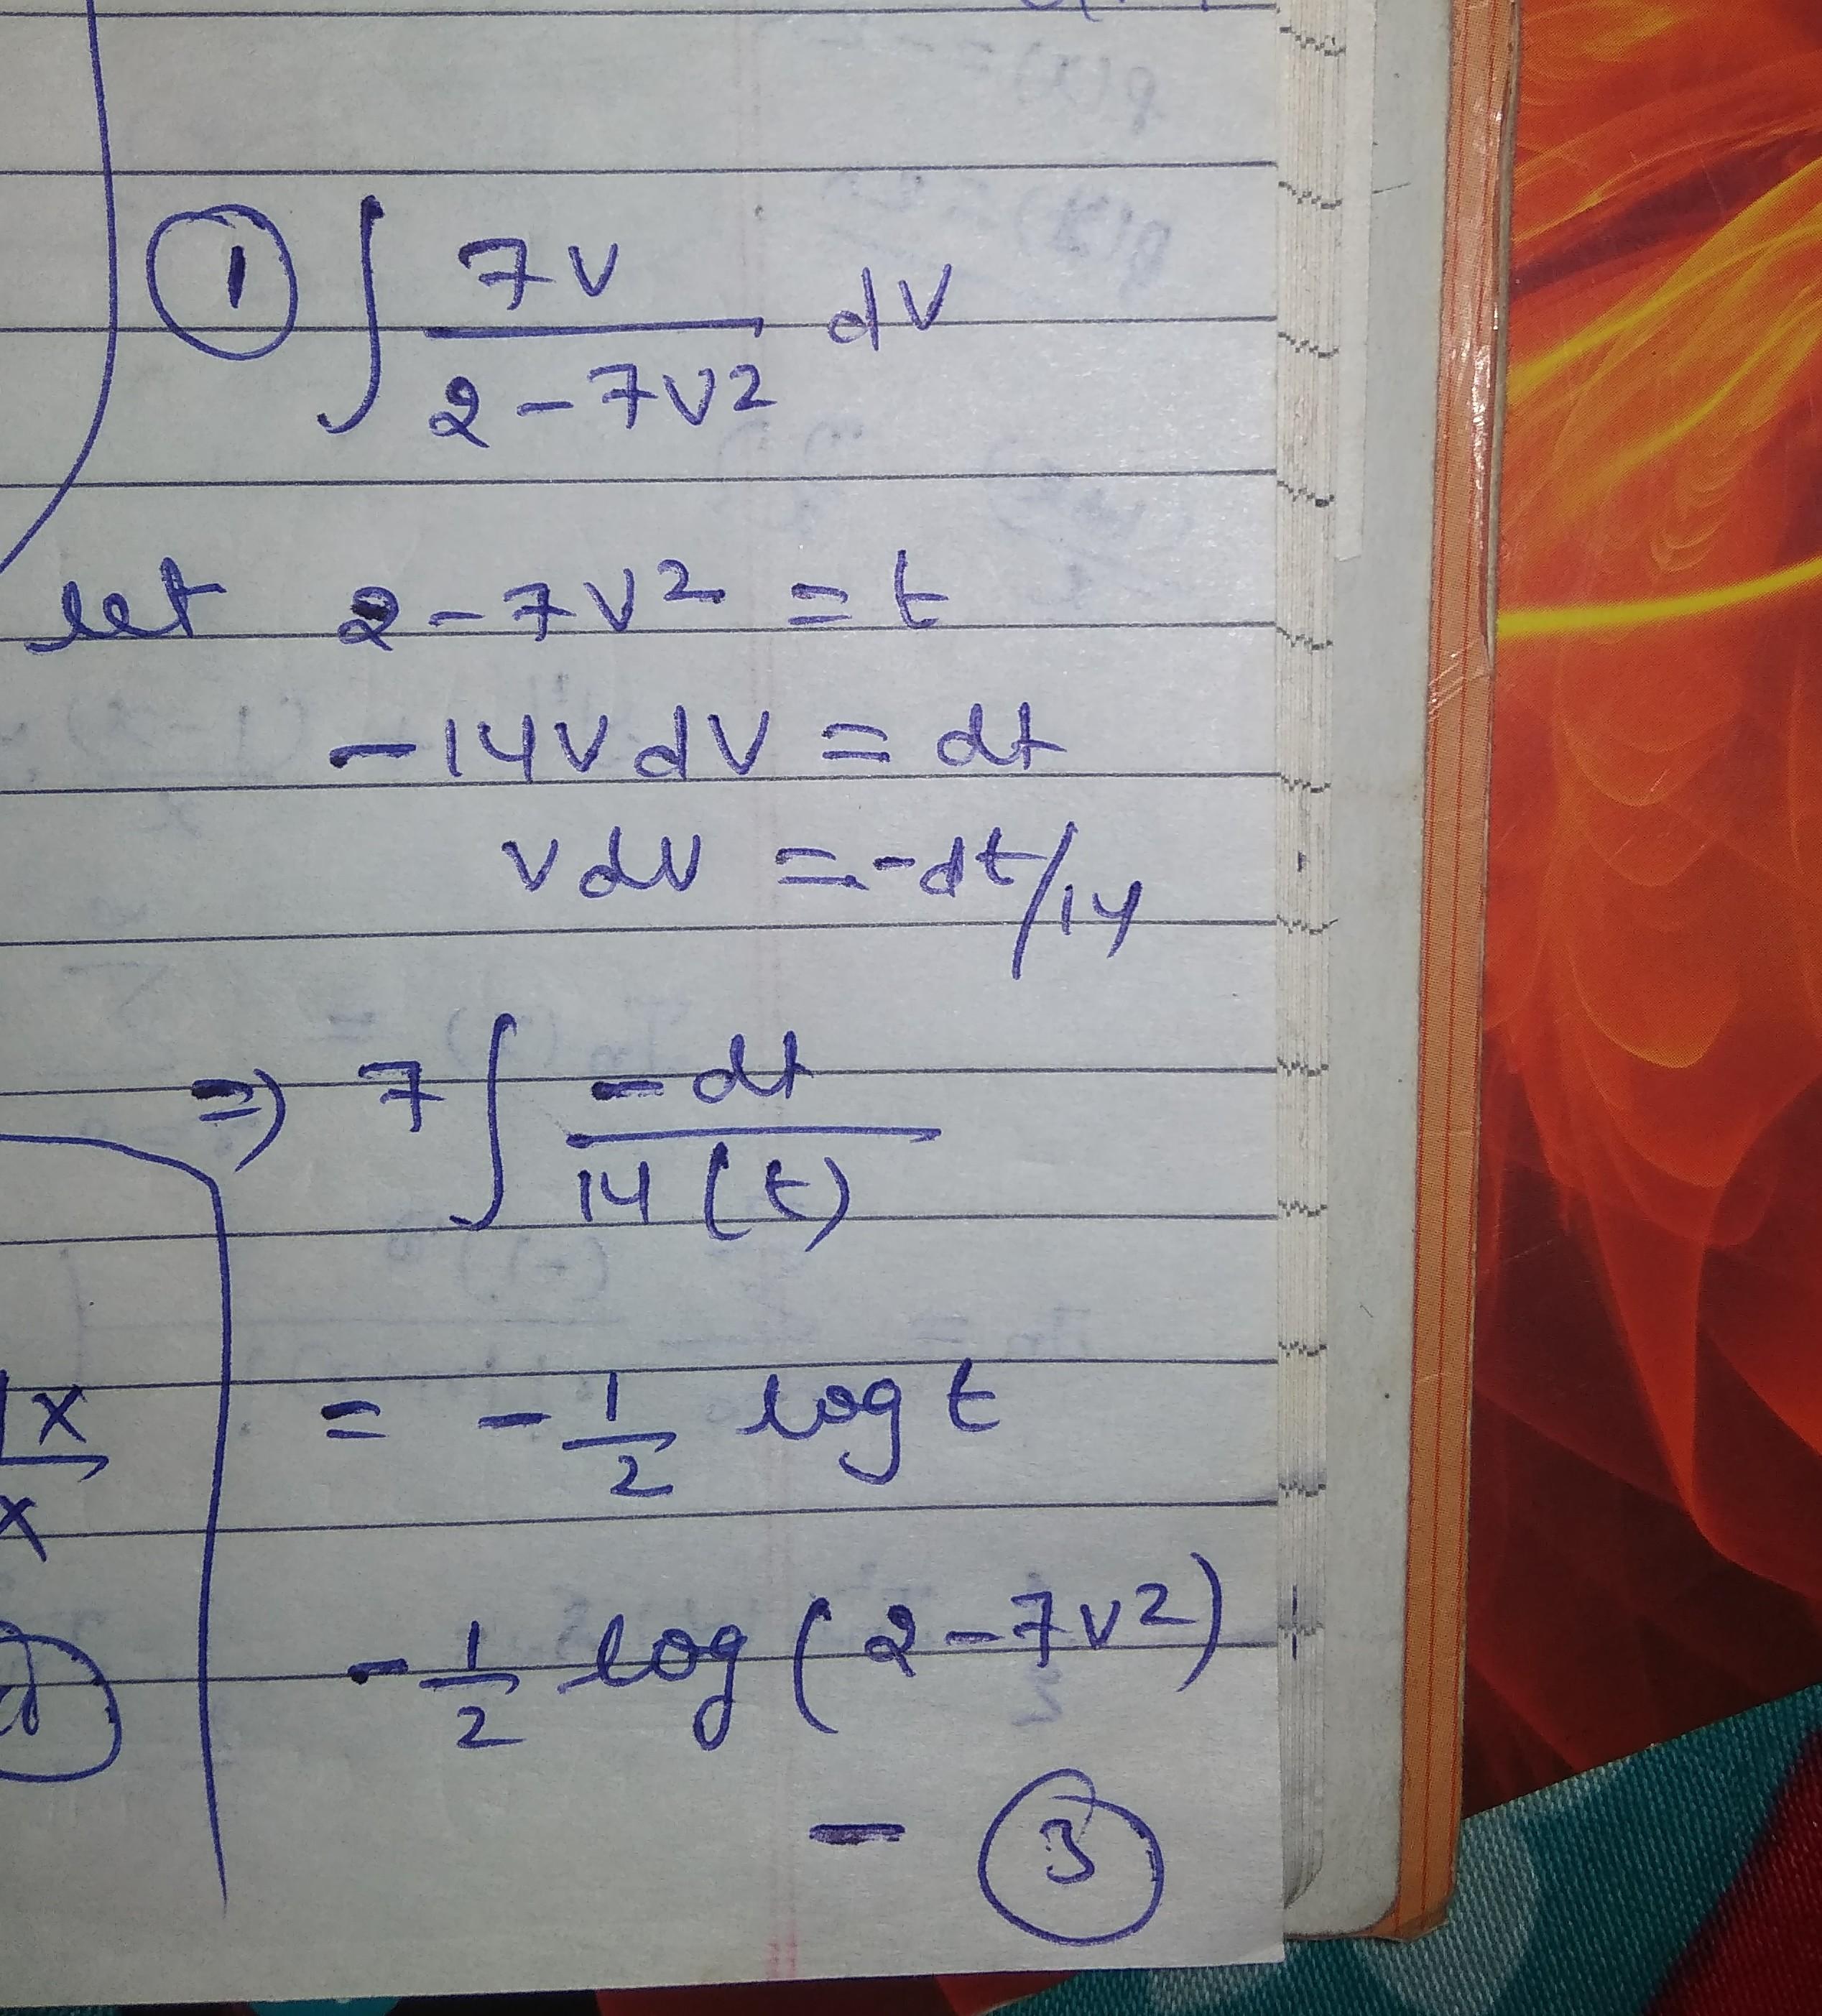 ① ∫ 7v / 2-7v² dv
let 2-7v² = t
-14v dv = dt
v dv = -dt/14
=> 7 ∫ -dt / 14 (t)
= -1/2 log t
-1/2 log (2-7v²)
- ③
x
x